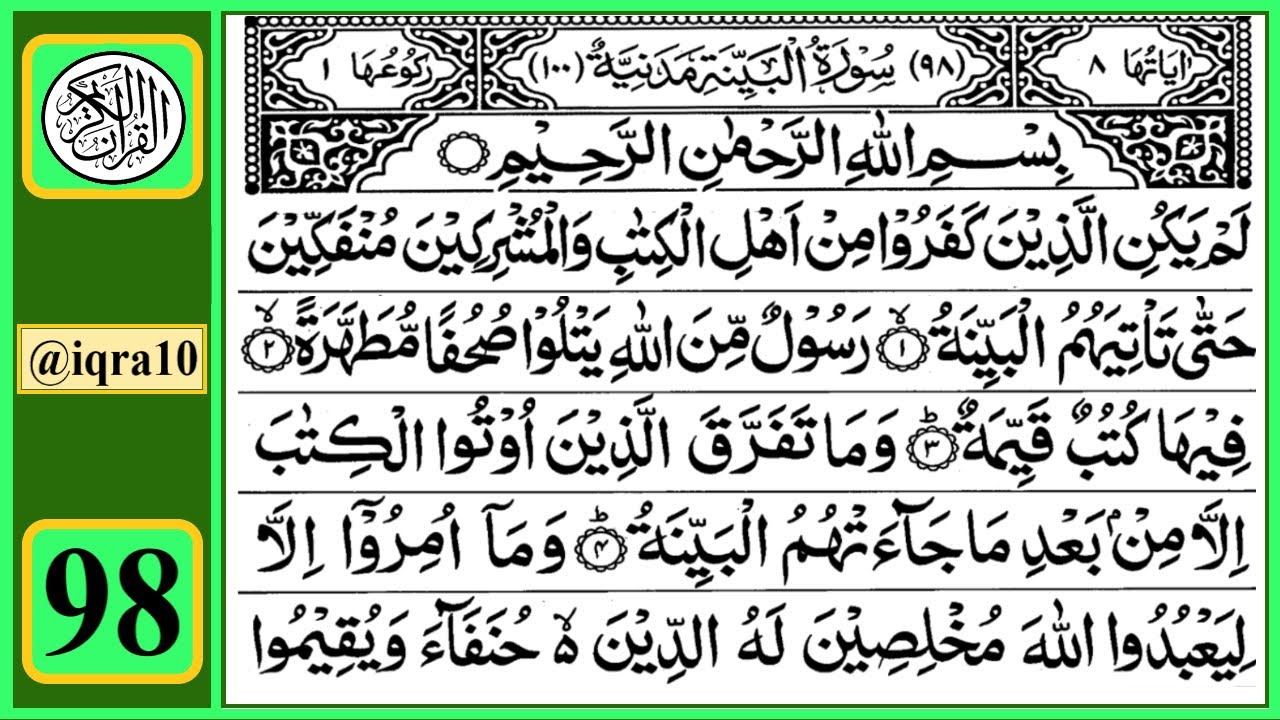 القرآن الكريم
@iqra10
98
اٰيَاتُهَا ٨ (٩٨) سُوْرَةُ الْبَيِّنَةِ مَدَنِيَّةٌ (١٠٠) رُكُوْعُهَا ١
بِسْمِ اللّٰهِ الرَّحْمٰنِ الرَّحِيْمِ
لَمْ يَكُنِ الَّذِيْنَ كَفَرُوْا مِنْ اَهْلِ الْكِتٰبِ وَالْمُشْرِكِيْنَ مُنْفَكِّيْنَ
حَتّٰى تَاْتِيَهُمُ الْبَيِّنَةُ ۙ﴿١﴾ رَسُوْلٌ مِّنَ اللّٰهِ يَتْلُوْا صُحُفًا مُّطَهَّرَةً ۙ﴿٢﴾
فِيْهَا كُتُبٌ قَيِّمَةٌ ؕ﴿٣﴾ وَمَا تَفَرَّقَ الَّذِيْنَ اُوْتُوا الْكِتٰبَ
اِلَّا مِنْۢ بَعْدِ مَا جَآءَتْهُمُ الْبَيِّنَةُ ؕ﴿٤﴾ وَمَآ اُمِرُوْٓا اِلَّا
لِيَعْبُدُوا اللّٰهَ مُخْلِصِيْنَ لَهُ الدِّيْنَ ۙ۬ حُنَفَآءَ وَيُقِيْمُوا